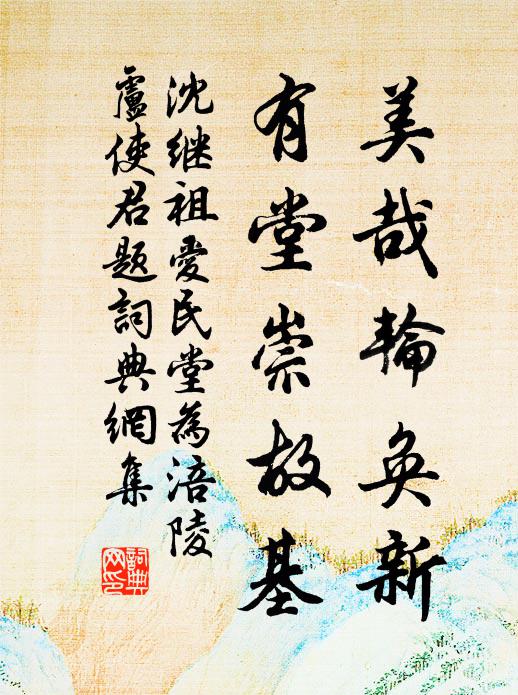 美哉輪奐新
有堂崇故基
沈继祖愛民堂為涪陵
盧使君題詞典網集
詞典
网印